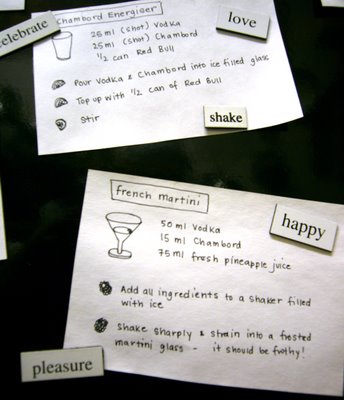 celebrate
love
Chambord Energiser
25 ml (shot) Vodka
25 ml (shot) Chambord
1/2 can Red Bull
Pour Vodka & Chambord into ice filled glass
Top up with 1/2 can of Red Bull
Stir
shake
french martini
happy
50 ml Vodka
15 ml Chambord
75 ml fresh pineapple juice
Add all ingredients to a shaker filled
with ice
Shake sharply & strain into a frosted
martini glass - it should be frothy!
pleasure